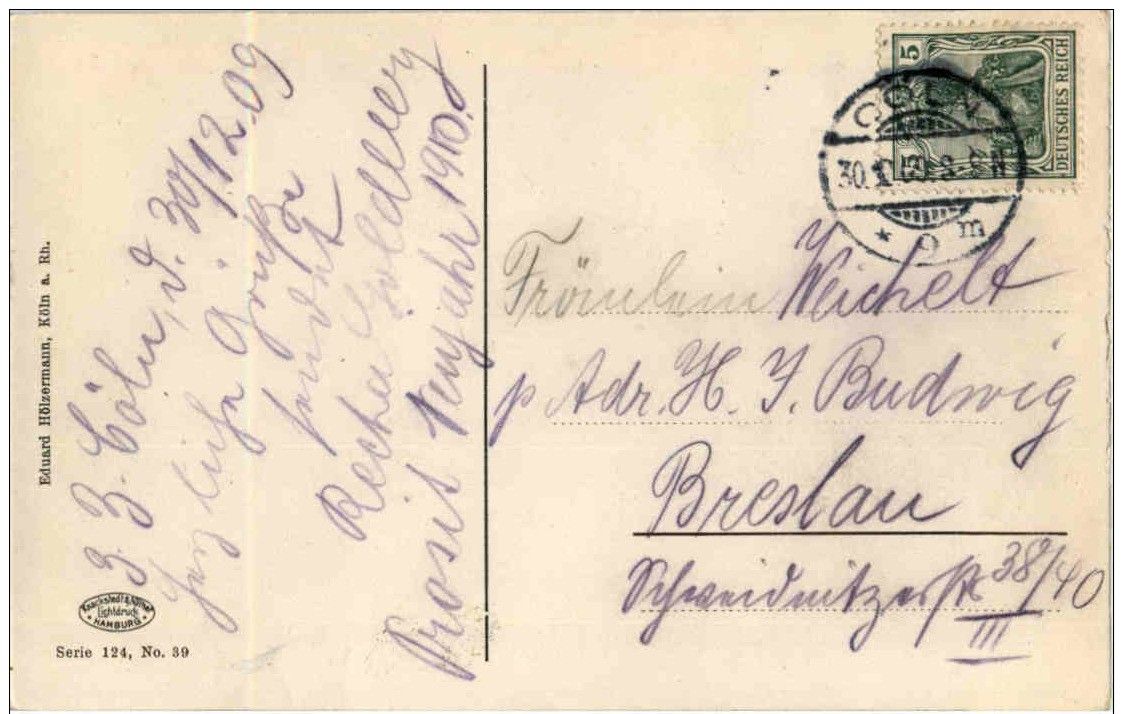 Z. Z. Cöln, d. 30/12.09
Herzliche Grüße
sendet
Recha Goldberg
Prosit Neujahr 1910.
Eduard Hölzermann, Köln a. Rh.
Knackstedt & Näther
Lichtdruck
HAMBURG
Serie 124, No. 39
5
DEUTSCHES REICH
CÖLN
30.12.09. 8-9 N
* 9 m
Fräulein Weichelt
p Adr. H. J. Budwig
Breslau
Schweidnitzerstr 38/40
III